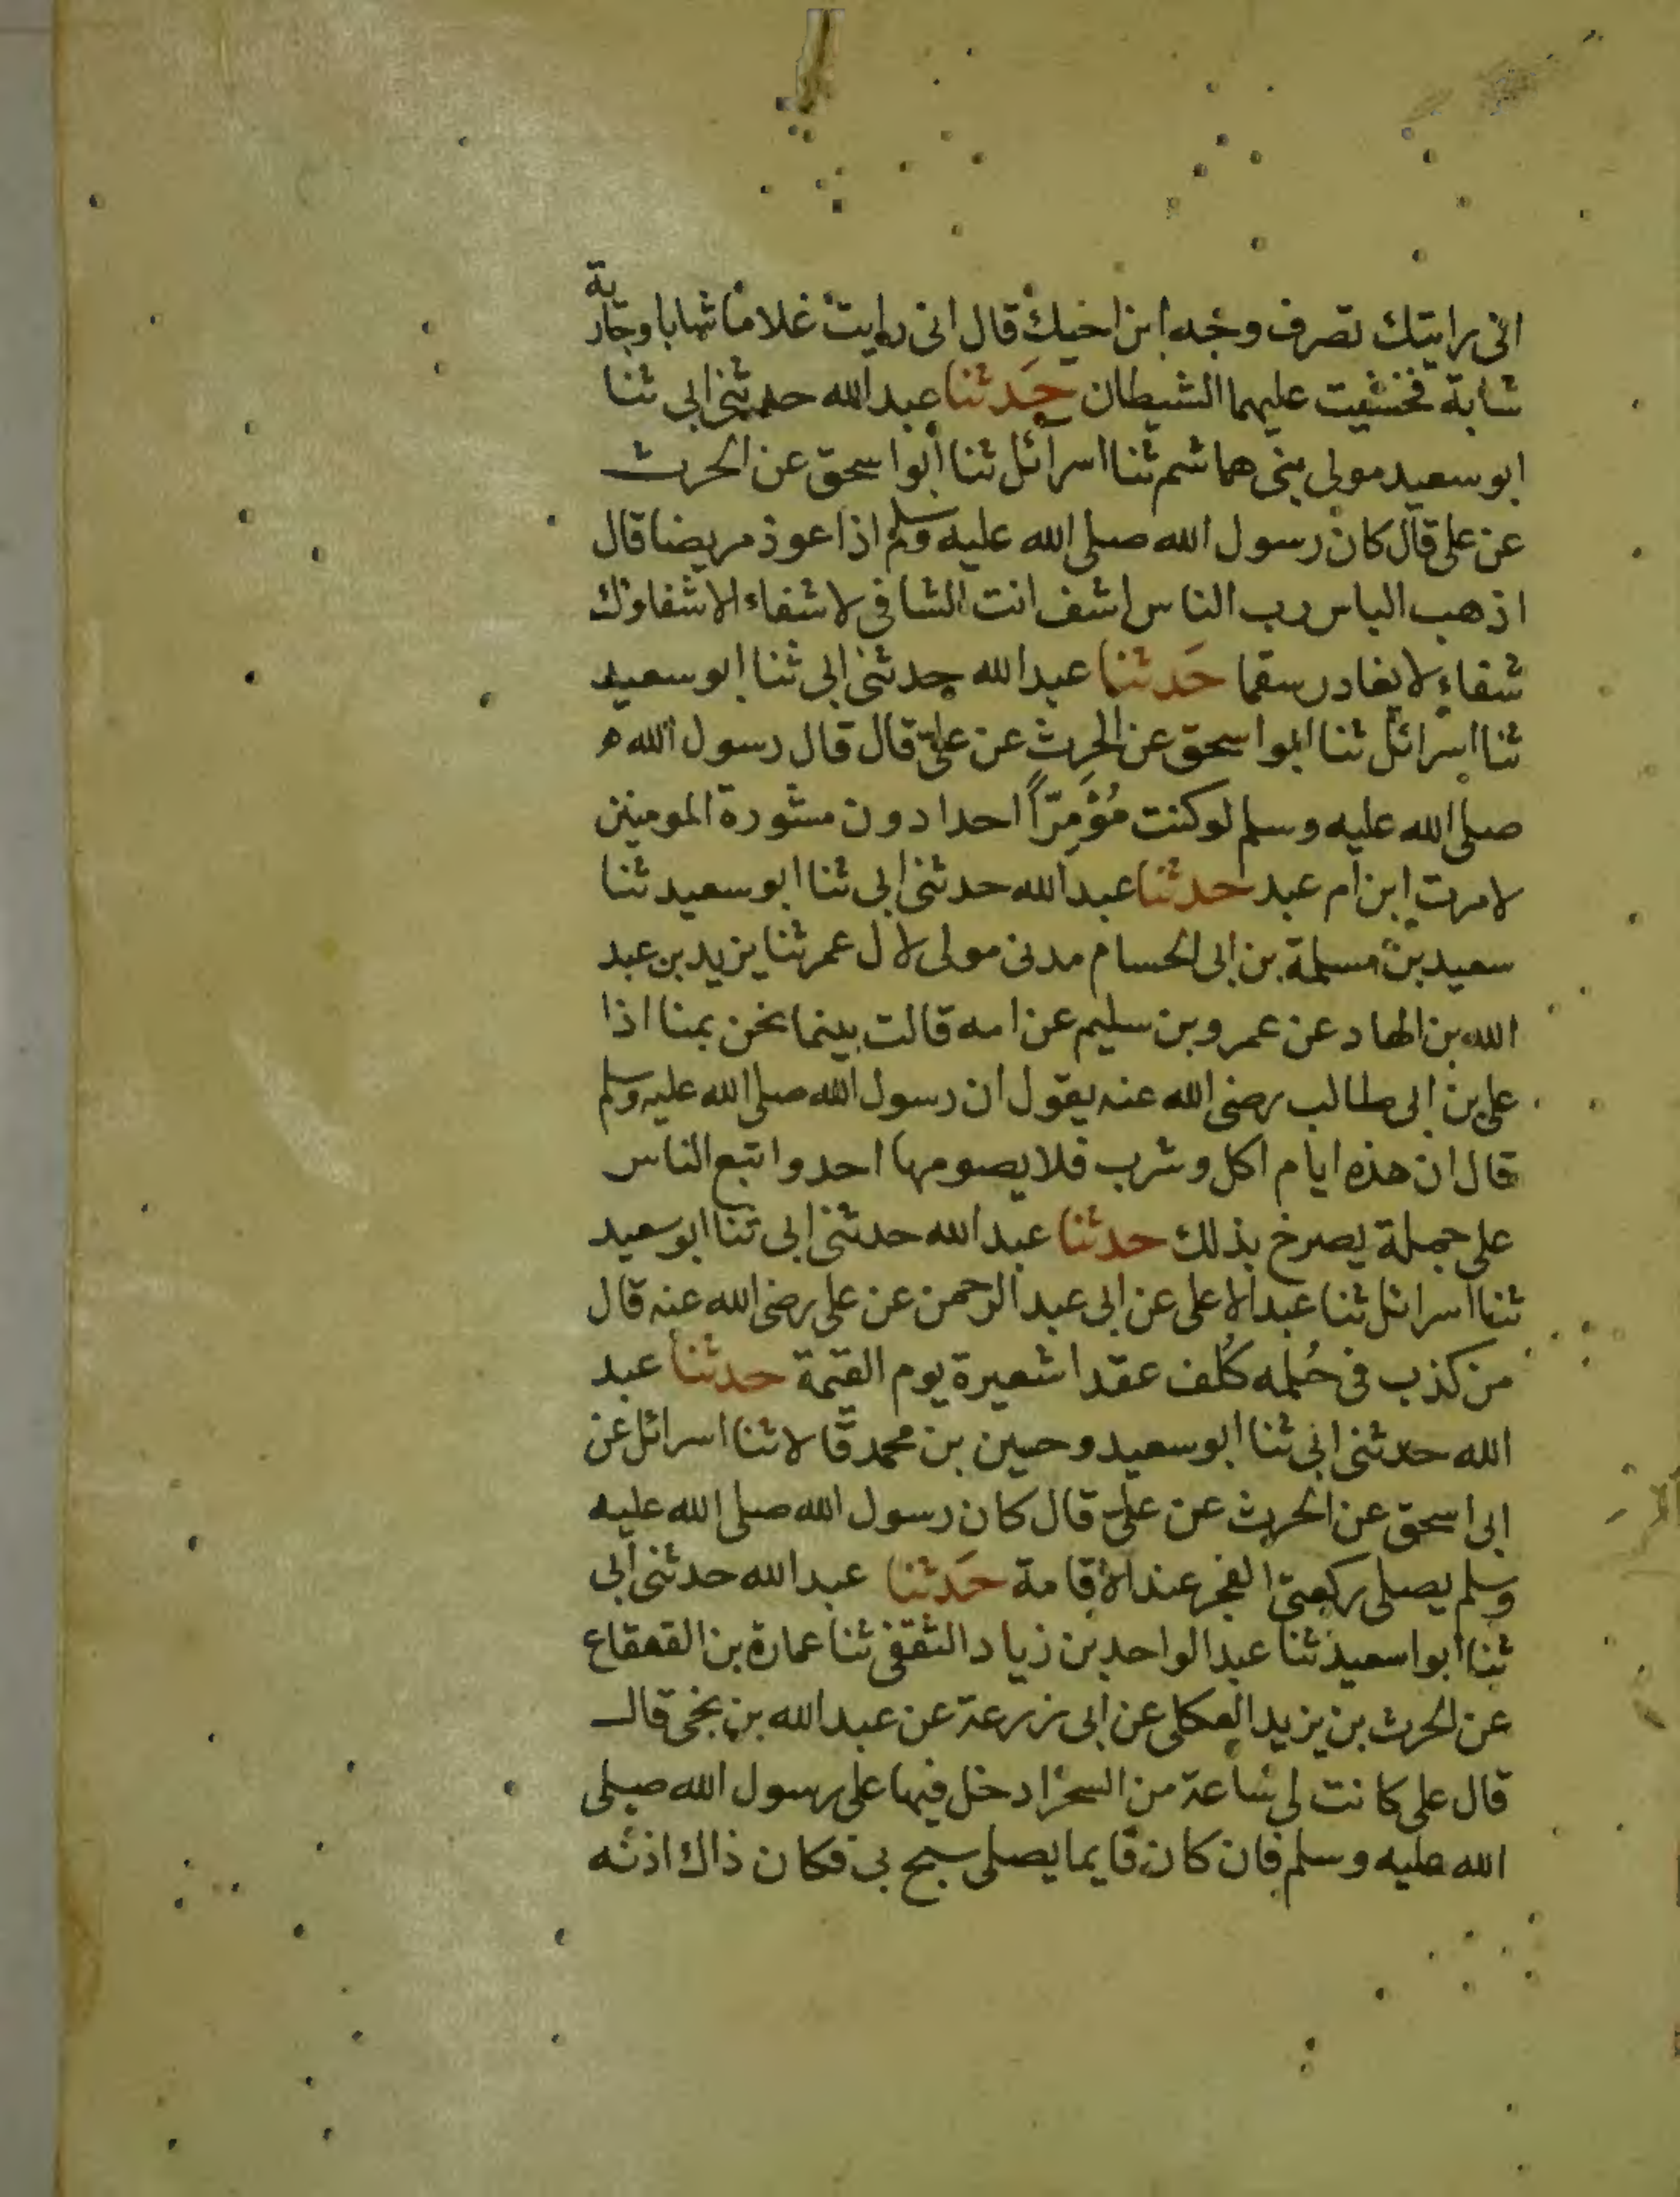 انى رايتك تصرف وجه ابن اخيك قال انى رايت غلاما شابا وجارية
شابة فخشيت عليهما الشيطان حدثنا عبد الله حدثنى ابى ثنا
ابو سعيد مولى بنى هاشم ثنا اسرائل ثنا ابو اسحق عن الحرث
عن على قال كان رسول الله صلى الله عليه وسلم اذا عوذ مريضا قال
اذهب الباس رب الناس اشف انت الشافى لا شفاء الا شفاوك
شفاء لا يغادر سقما حَدثنا عبد الله حدثنى ابى ثنا ابو سعيد
ثنا اسرائل ثنا ابو اسحق عن الحرث عن على قال قال رسول الله
صلى الله عليه وسلم لو كنت مُؤَمِّرًا احدا دون مشورة المومنين
لامرت ابن ام عبد حدثنا عبد الله حدثنى ابى ثنا ابو سعيد ثنا
سعيد بن مسلمة بن ابى الحسام مدنى مولى لال عمر ثنا يزيد بن عبد
الله بن الهاد عن عمرو بن سليم عن امه قالت بينما نحن بمنا اذا
على بن ابى طالب رضى الله عنه يقول ان رسول الله صلى الله عليه وسلم
قال ان هذه ايام اكل وشرب فلا يصومها احد واتبع الناس
على جمله يصرخ بذلك حدثنا عبد الله حدثنى ابى ثنا ابو سعيد
ثنا اسرائل ثنا عبد الاعلى عن ابى عبد الرحمن عن على رضى الله عنه قال
من كذب فى حُلمه كُلف عقدا شعيرة يوم القيمة حدثنا عبد
الله حدثنى ابى ثنا ابو سعيد وحسين بن محمد قالا ثنا اسرائل عن
ابى اسحق عن الحرث عن على قال كان رسول الله صلى الله عليه
وسلم يصلى ركعتى الفجر عند الاقامة حَدثنا عبد الله حدثنى ابى
ثنا ابوا سعيد ثنا عبد الواحد بن زياد الثقفى ثنا عمارة بن القعقاع
عن الحرث بن يزيد العكلى عن ابى زرعة عن عبد الله بن نجى قال
قال على كانت لى ساعة من السحر ادخل فيها على رسول الله صلى
الله عليه وسلم فان كان قايما يصلى سبح بى فكان ذاك اذنه